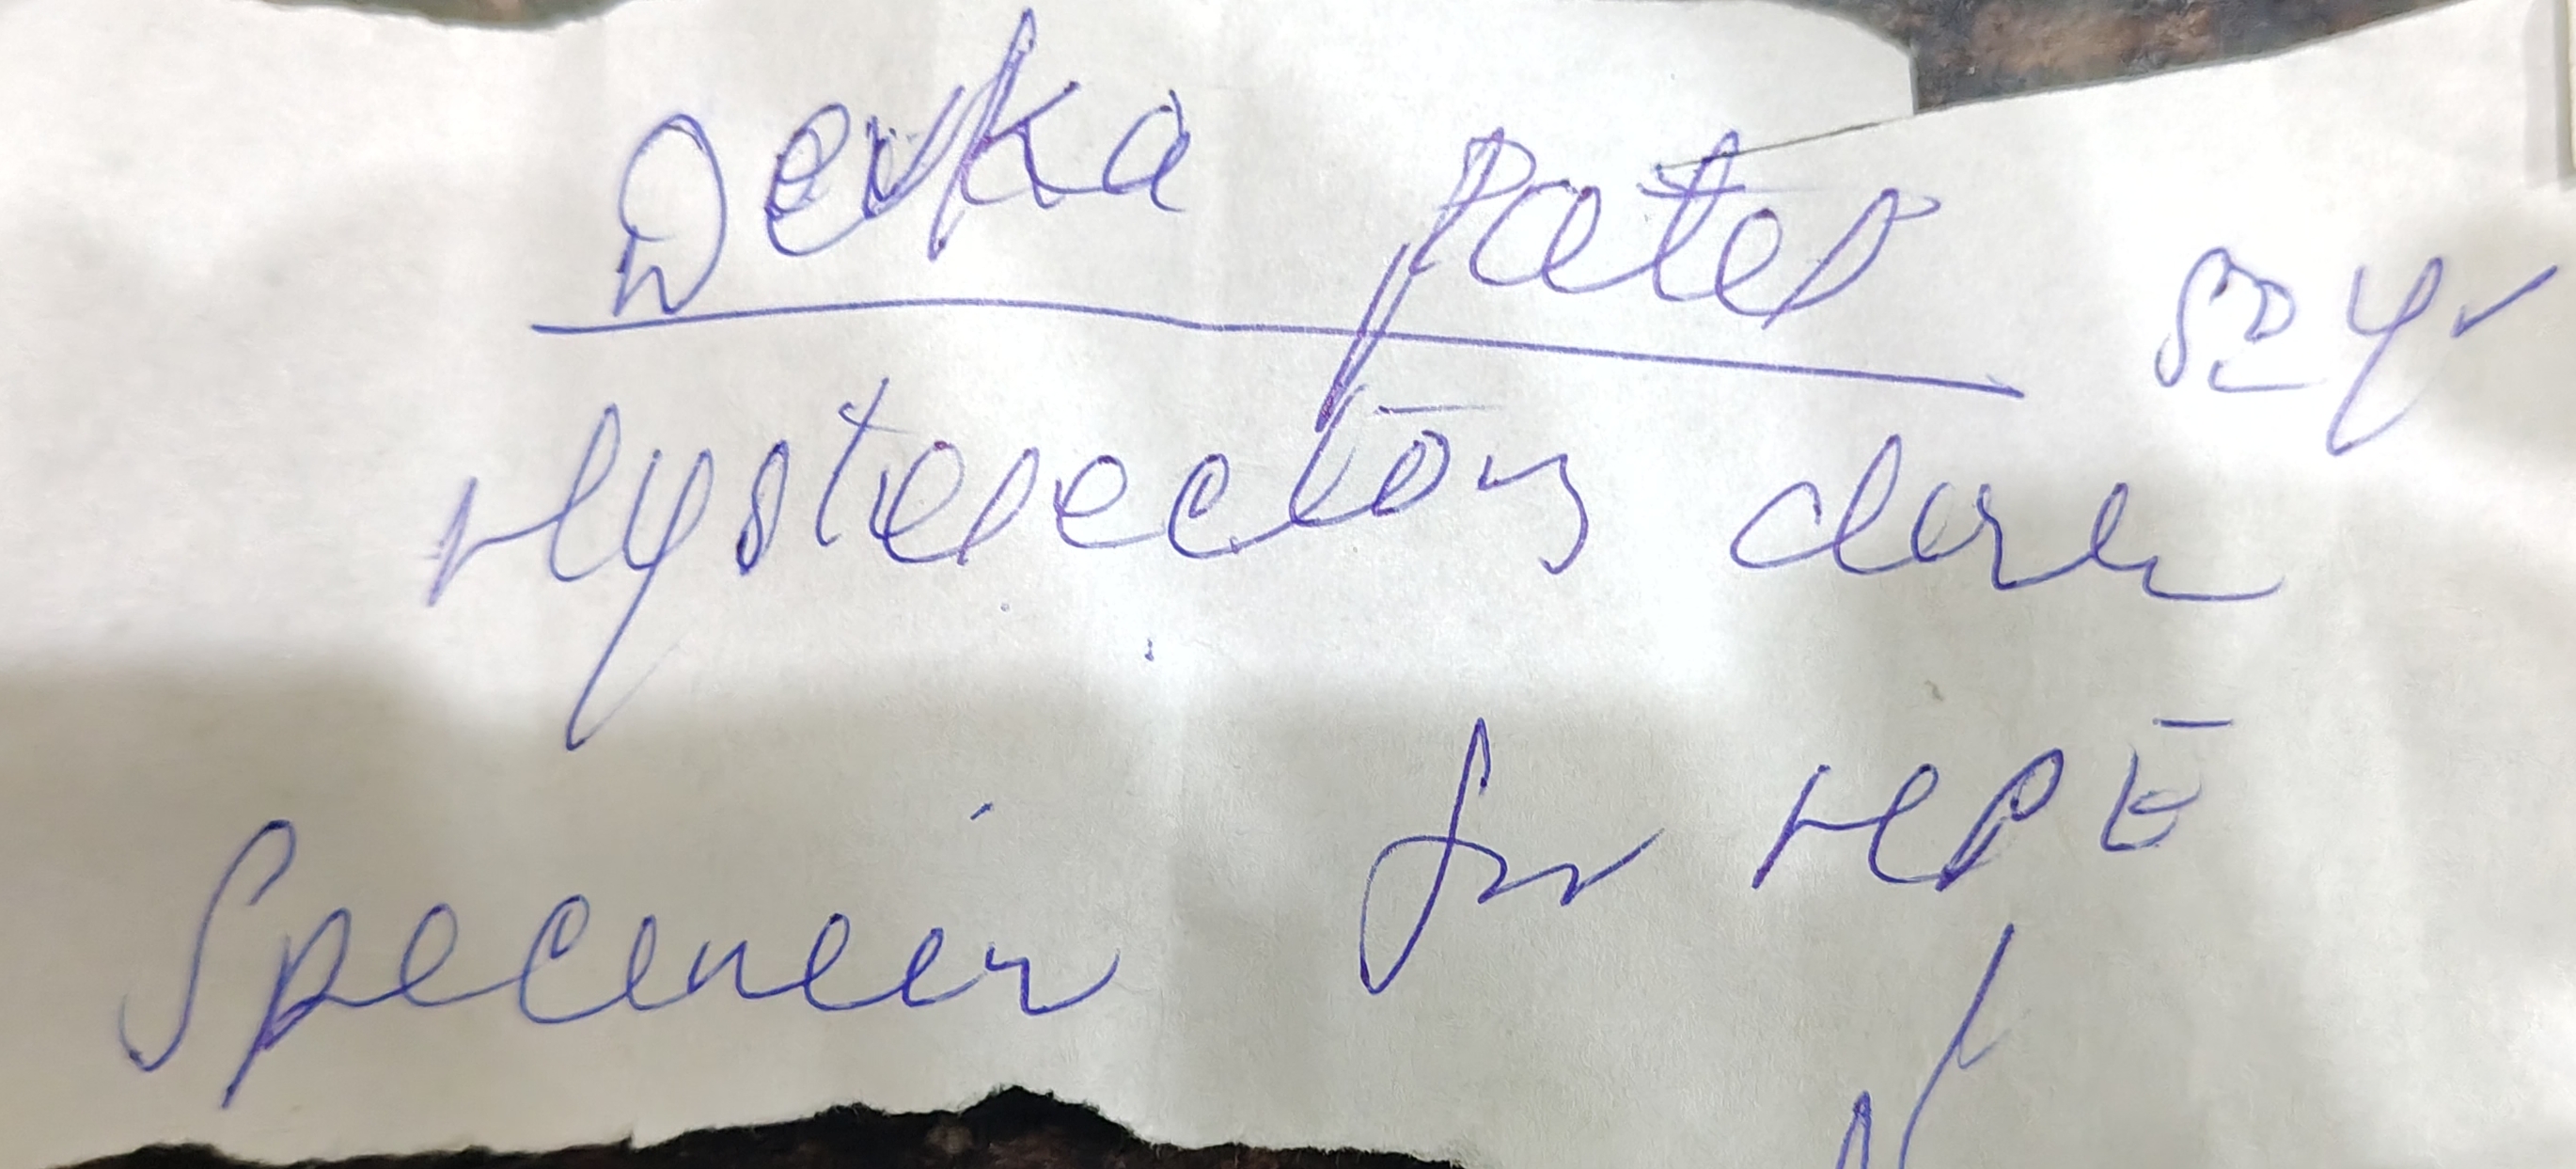 Devka Patel 52 yr
Hysterectomy done
Specimen for HPE